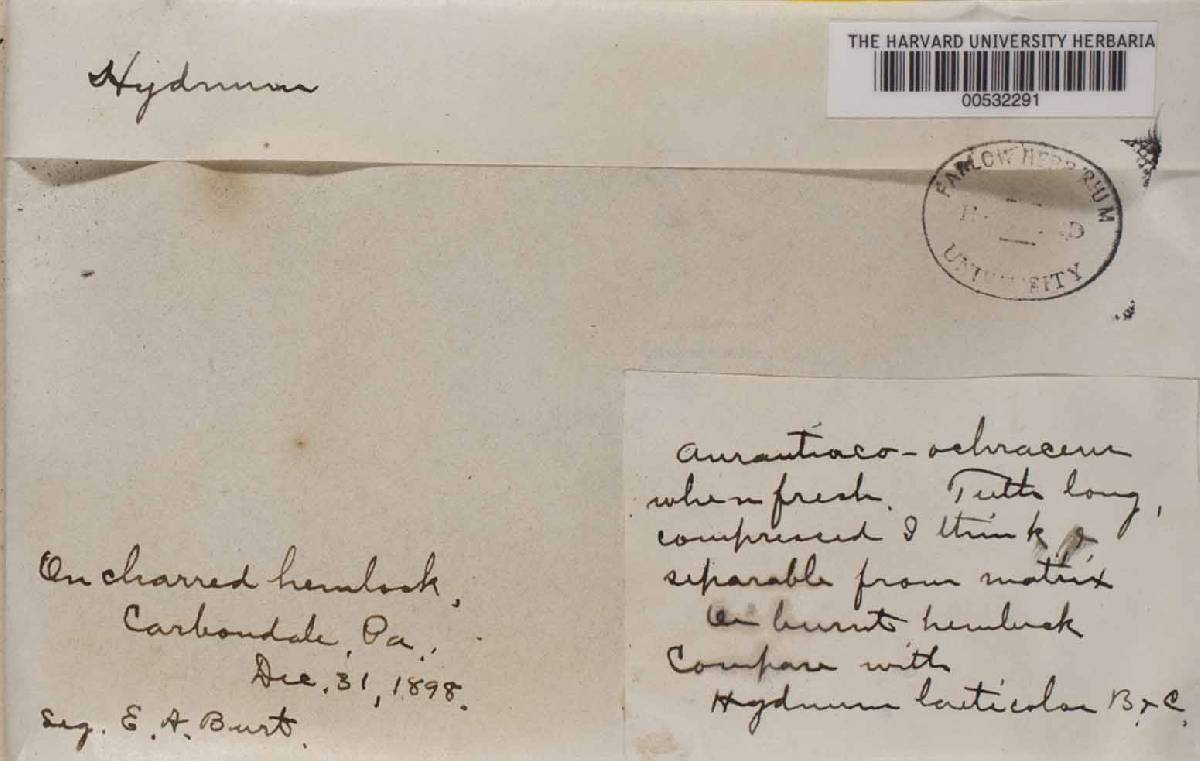 Hydnum
THE HARVARD UNIVERSITY HERBARIA
00532291
FARLOW HERBARIUM
HARVARD
UNIVERSITY
On charred hemlock,
Carbondale, Pa.,
Dec. 31, 1898.
Leg. E. A. Burt.
Aurantiaco-ochraceum
when fresh. Teeth long,
compressed I think &
separable from matrix
On burnt hemlock
Compare with
Hydnum laeticolor B & C.